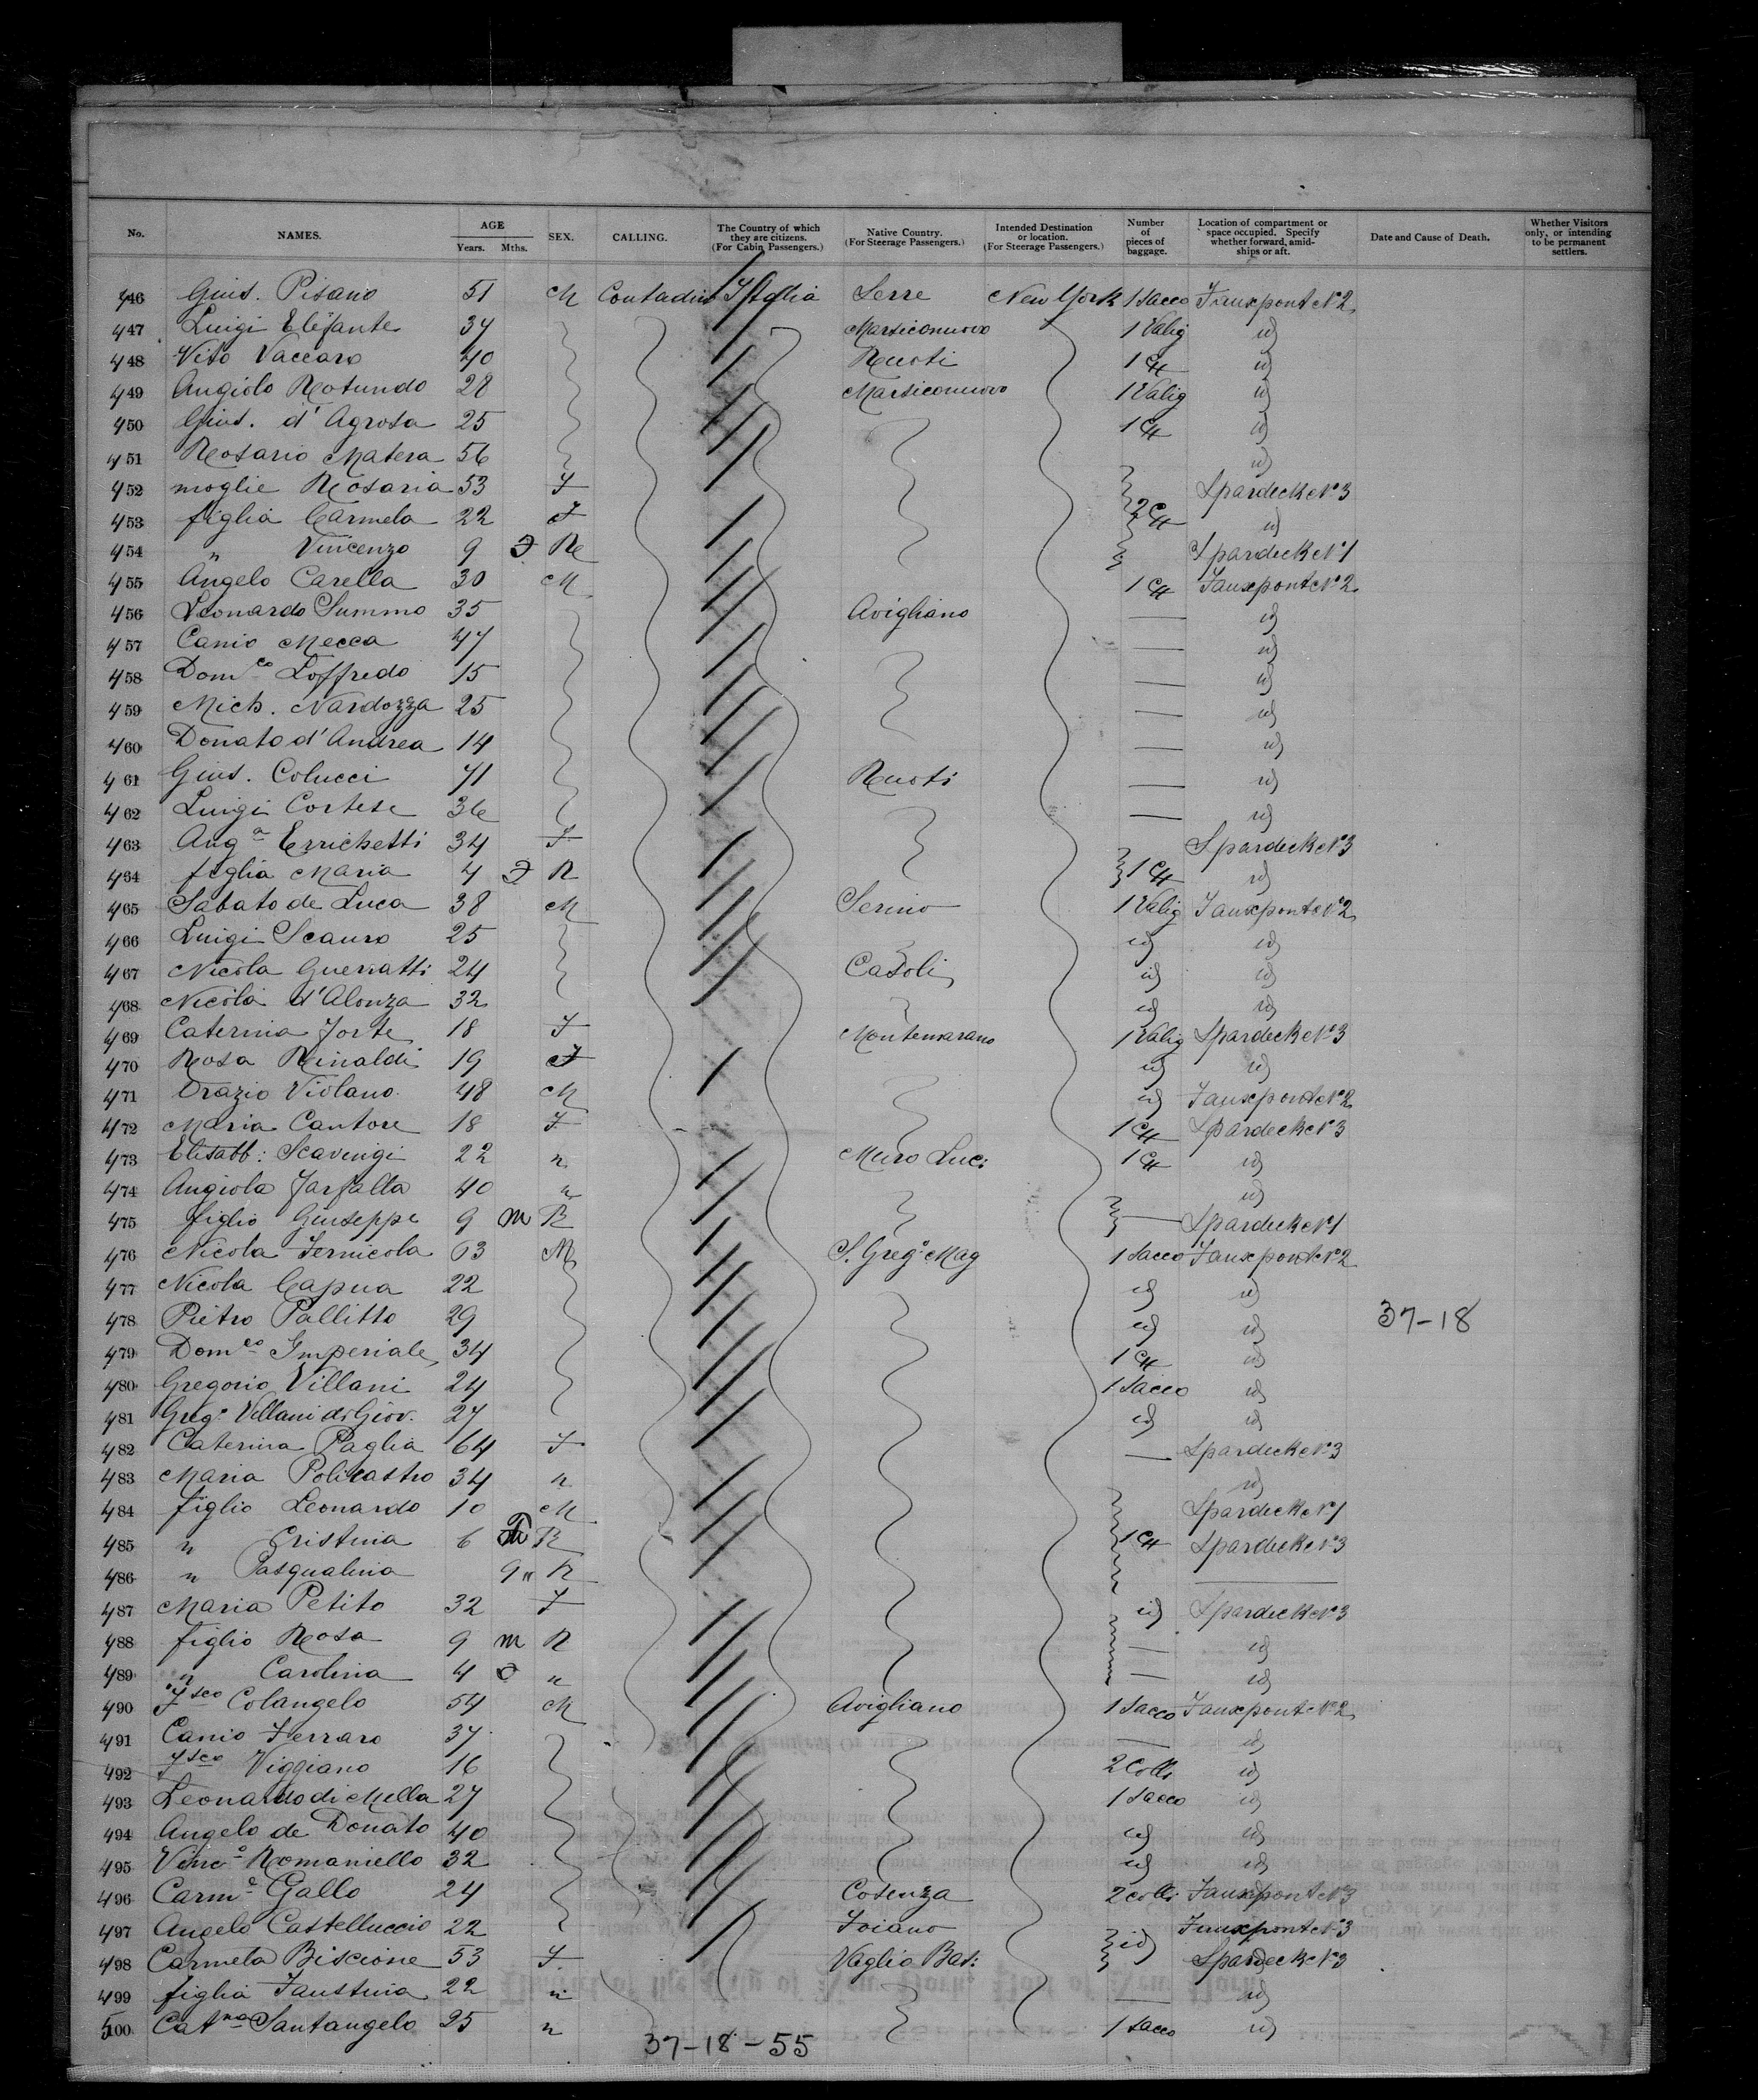 No. NAMES. AGE Years. Mths. SEX. CALLING. The Country of which they are citizens. (For Cabin Passengers.) Native Country. (For Steerage Passengers.) Intended Destination or location. (For Steerage Passengers.) Number of pieces of baggage. Location of compartment or space occupied. Specify whether forward, amidships or aft. Date and Cause of Death. Whether Visitors only, or intending to be permanent settlers.
446 Gius. Pisano 51 M Contadino Italia Serre New York 1 Sacco Fauxpont N° 2
447 Luigi Elefante 34 Marsiconuovo 1 Valig id
448 Vito Vaccaro 40 Ruoti 1 Ca id
449 Angiolo Rotundo 28 Marsiconuovo 1 Valig id
450 Gius. d'Agrosa 25 1 Ca id
451 Rosario Matera 56 id
452 moglie Rosaria 53 F Spardeck N° 3
453 figlia Carmela 22 F 2 Ca id
454 " Vincenzo 9 R Spardeck N° 1
455 Angelo Carella 30 M 1 Ca Fauxpont N° 2
456 Leonardo Summo 35 Avigliano — id
457 Canio Mecca 47 — id
458 Dom.co Loffredo 15 — id
459 Mich. Nardozza 25 — id
460 Donato d'Andrea 14 — id
461 Gius. Colucci 41 Ruoti — id
462 Luigi Cortese 36 — id
463 Ang.a Errichetti 34 F Spardeck N° 3
464 figlia Maria 4 R 1 Ca id
465 Sabato de Luca 38 M Serino 1 Valig Fauxpont N° 2
466 Luigi Scauro 25 id id
467 Nicola Guerratti 24 Casoli id id
468 Nicola d'Alonza 32 id id
469 Caterina Forte 18 F Montemarano 1 Valig Spardeck N° 3
470 Rosa Rinaldi 19 F id id
471 Orazio Violano 48 M id Fauxpont N° 2
472 Maria Cantore 18 F 1 Ca Spardeck N° 3
473 Elisabb: Scavingi 22 " Muro Luc: 1 Ca id
474 Angiola Farfalla 40 " id
475 figlio Giuseppe 9 m R — Spardeck N° 1
476 Nicola Fernicola 63 M S. Greg° Mag 1 Sacco Fauxpont N° 2
477 Nicola Capua 22 id id
478 Pietro Pallitto 29 id id 37-18
479 Dom.co Imperiale 34 1 Ca id
480 Gregorio Villani 24 1 Sacco id
481 Greg° Villani di Giov. 27 id id
482 Caterina Paglia 64 F — Spardeck N° 3
483 Maria Policastro 34 " id
484 figlio Leonardo 10 M Spardeck N° 1
485 " Cristina 6 R 1 Ca Spardeck N° 3
486 " Pasqualina 9 " R —
487 Maria Petito 32 F id Spardeck N° 3
488 figlio Rosa 9 m R — id
489 " Carolina 4 " — id
490 F.sco Colangelo 54 M Avigliano 1 Sacco Fauxpont N° 2
491 Canio Ferraro 37 — id
492 F.sco Viggiano 16 2 Colli id
493 Leonardo di Mella 27 1 Sacco id
494 Angelo de Donato 40 id id
495 Vinc° Romaniello 32 id id
496 Carm.e Gallo 24 Cosenza 2 colli Fauxpont N° 3
497 Angelo Castelluccio 22 Foiano id Fauxpont N° 3
498 Carmela Biscione 53 F Vaglio Bas: Spardeck N° 3
499 figlia Faustina 22 " — id
500 Cat.na Santangelo 25 " 1 Sacco id
37-18-55